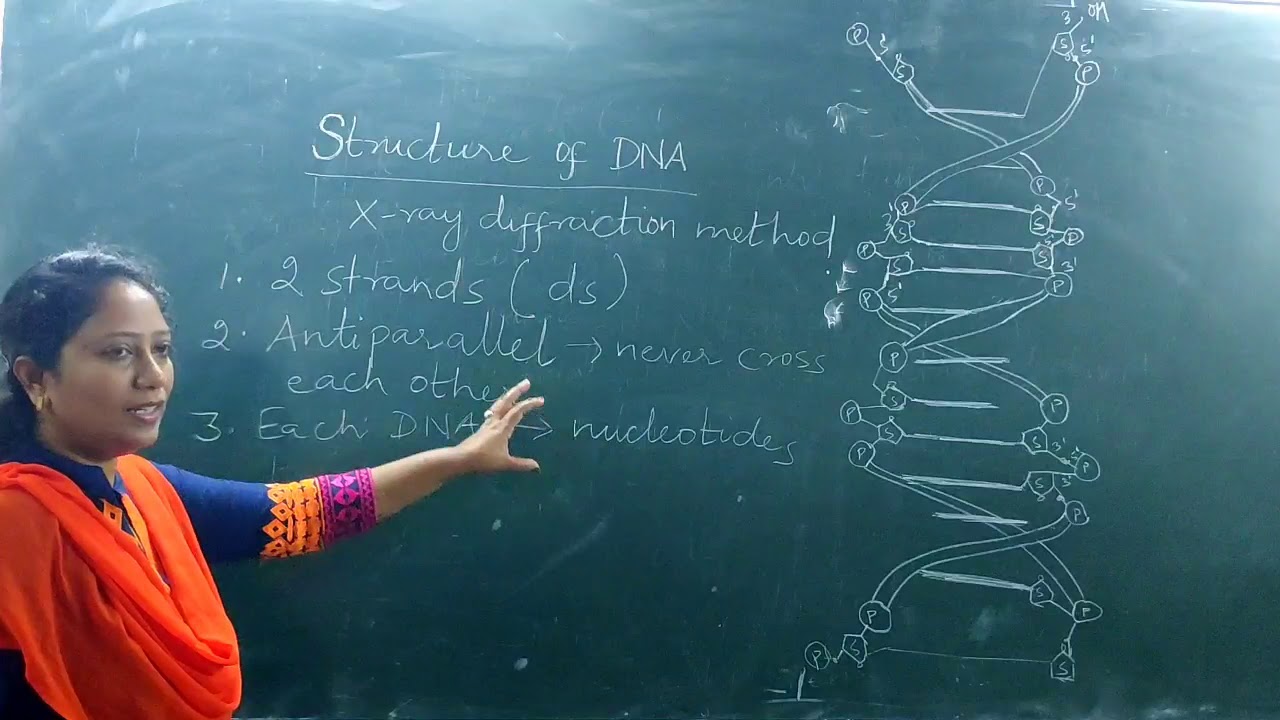 Structure of DNA
X-ray diffraction method
1. 2 strands (ds)
2. Antiparallel → never cross
each other
3. Each DNA → nucleotides
3' OH
S 5'
P
P 3'
S
P
P 5'
3' S
S
P
S
P
S 3'
S
P
P 5'
P
S
P
P
S
S 3'
P
P
S 3'
P
S
P
P
P
S
S